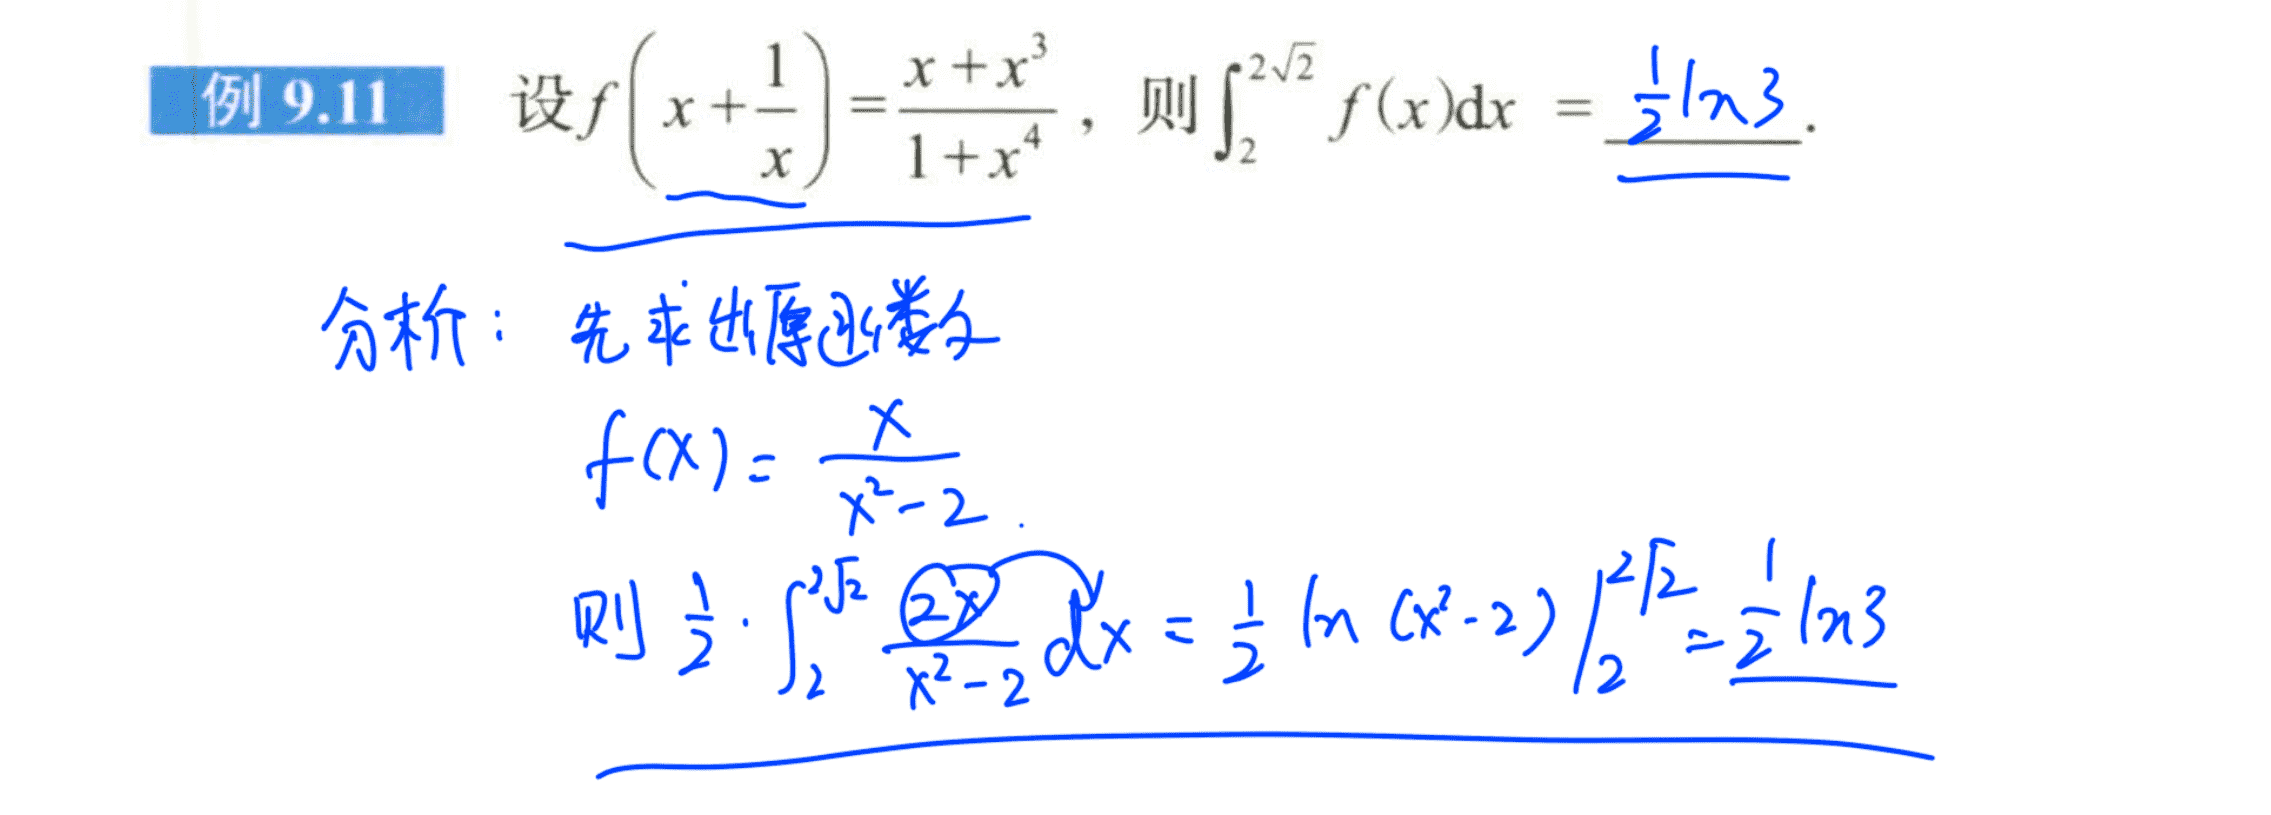 例 9.11 设f(x+1/x)=(x+x³)/(1+x⁴), 则∫₂^{2√2} f(x)dx = ½ln3.
分析: 先求出原函数
f(x)= x/(x²-2).
则 ½·∫₂^{2√2} 2x/(x²-2) dx = ½ ln(x²-2)|₂^{2√2} = ½ln3